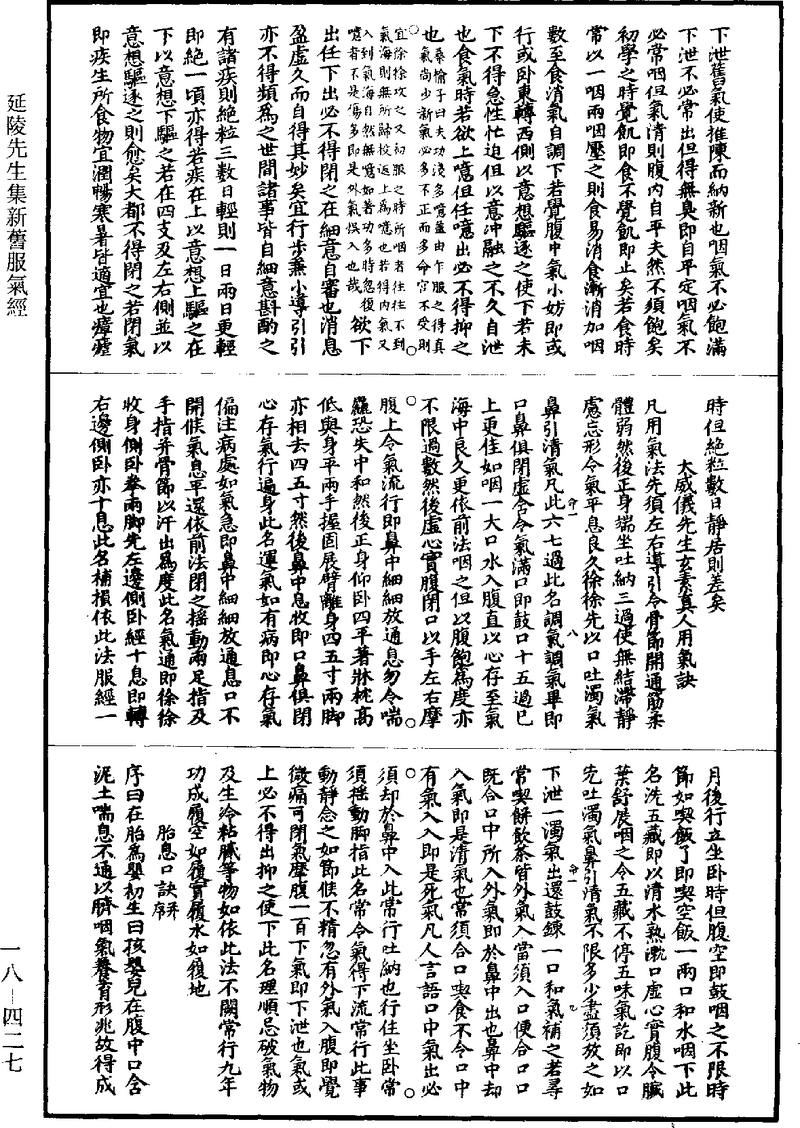 下泄舊氣使推陳而納新也咽氣不必飽滿
下泄不必常出但得無臭即自平定咽氣不
必常咽但氣清則腹内自平夫然不須飽矣
初學之時覺飢即食不覺飢即止矣若食時
常以一咽兩咽壓之則食易消食漸消加咽
數至食消氣自調下若覺腹中氣小妨即或
行或卧東轉西側以意想驅逐之使下若未
下不得急性忙迫但以意冲融之不久自泄
也食氣時若欲上噫但任噫出必不得抑之
也桑榆子曰夫功淺多噫蓋由乍服之得真
氣尚少新氣必多不正而多命官不受則
宜徐徐攻之又初服之時所咽者往往不到
氣海則無所歸投返上爲噫也若得内氣又
入到氣海自然無噫如著功多時忽復
噫者不是傷多即是外氣悞入也哉欲下
出任下出必不得閉之在細意自審也消息
盈虚久而自得其妙矣宜行步兼小導引引
亦不得頻爲之世間諸事皆自細意斟酌之
有諸疾則絶粒三數日輕則一日兩日更輕
即絶一頃亦得若疾在上以意想上驅之在
下以意想下驅之若在四支及左右側並以
意想驅逐之則愈矣大都不得閉之若閉氣
即疾生所食物宜潤暢寒暑皆適宜也瘴瘧
時但絶粒數日靜居則差矣
太威儀先生玄素真人用氣訣
凡用氣法先須左右導引令骨節開通筋柔
體弱然後正身端坐吐納三過使無結滯靜
慮忘形令氣平息良久徐徐先以口吐濁氣
鼻引清氣凡此六七過此名調氣調氣畢即
口鼻俱閉虚含令氣滿口即鼓口十五過已
上更佳如咽一大口水入腹直以心存至氣
海中良久更依前法咽之但以腹飽爲度亦
不限過數然後虚心實腹閉口以手左右摩
腹上令氣流行即鼻中細細放通息勿令喘
麤恐失中和然後正身仰卧四平著牀枕高
低與身平兩手握固展臂離身四五寸兩脚
亦相去四五寸然後鼻中息收即口鼻俱閉
心存氣行遍身此名運氣如有病即心存氣
偏注病處如氣急即鼻中細細放通息口不
開候氣息平還依前法閉之搖動兩足指及
手指并骨節以汗出爲度此名氣通即徐徐
收身側卧拳兩脚先左邊側卧經十息即轉
右邊側卧亦十息此名補損依此法服經一
月後行立坐卧時但腹空即鼓咽之不限時
節如喫飯了即喫空飯一兩口和水咽下此
名洗五藏即以清水熟漱口虚心實腹令臟
葉舒展咽之令五藏不停五味氣訖即以口
先吐濁氣鼻引清氣不限多少盡須放之如
下泄一濁氣出還鼓鍊一口和氣補之若尋
常喫餅飲茶皆外氣入當須入口便合口口
既合口中所入外氣即於鼻中出也鼻中却
入氣即是清氣也常須合口喫食不令口中
有氣入入即是死氣凡人言語口中氣出必
須却於鼻中入此常行吐納也行住坐卧常
須搖動脚指此名常令氣得下流常行此事
動靜念之如節候不精忽有外氣入腹即覺
微痛可閉氣摩腹一百下氣即下泄也氣或
上必不得出抑之使下此名理順忌破氣物
及生冷粘膩等物如依此法不闕常行九年
功成履空如履實履水如履地
胎息口訣并序
序曰在胎爲嬰初生曰孩嬰兒在腹中口含
泥土喘息不通以臍咽氣養育形兆故得成
延陵先生集新舊服氣經
一八—四二七